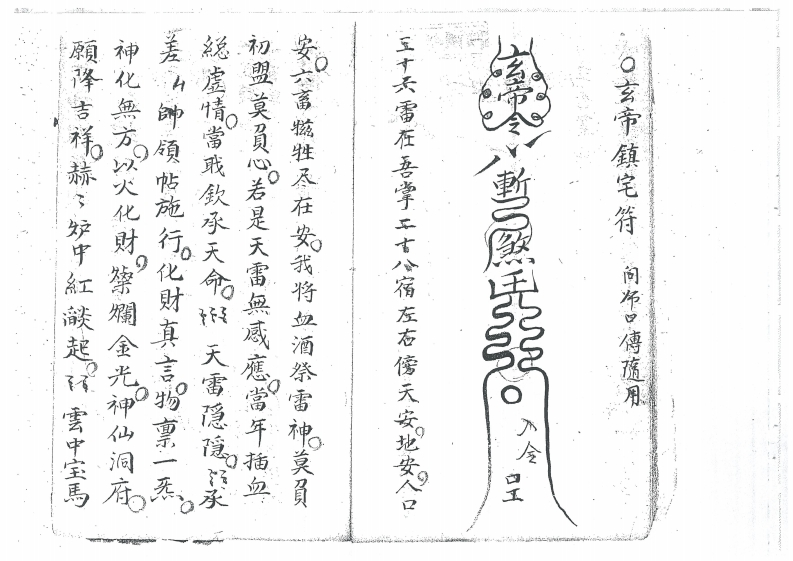 ○玄帝鎮宅符 問师口傳隨用
玄帝令
斬
煞
入令
三十六雷在吾掌二十八宿左右傍天安。地安。人口
安。六畜犠牲尽在安。我将血酒祭雷神。莫負
初盟莫負心。若是天雷無感應。當年插血
総虛情。當戢欽承天命。天雷隱隱。承
差帥領帖施行。化財真言。物稟一炁。
神化無方。以火化財。燦爛金光。神仙洞府。
願降吉祥。赫〻炉中紅燄起。雲中宝馬